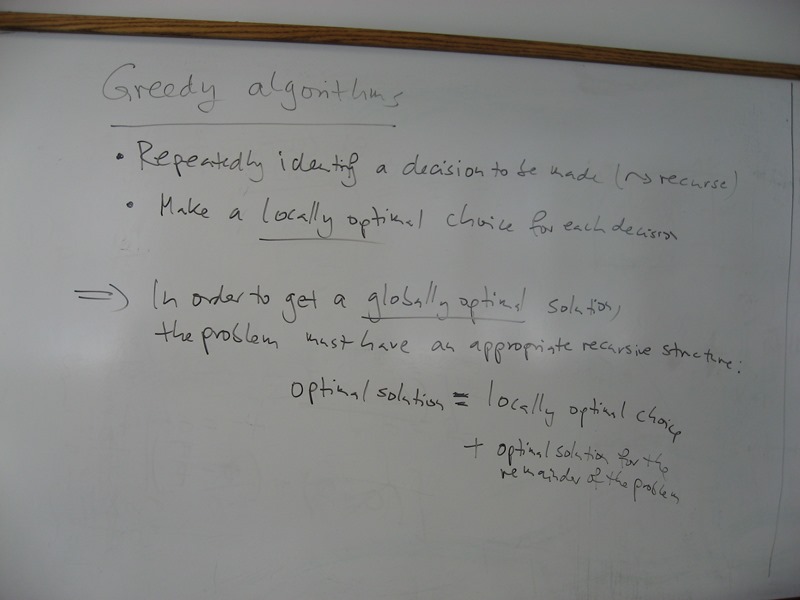 Greedy algorithms
• Repeatedly identify a decision to be made (⇝ recurse)
• Make a locally optimal choice for each decision
⇒ In order to get a globally optimal solution,
the problem must have an appropriate recursive structure:
optimal solution = locally optimal choice
+ optimal solution for the
remainder of the problem